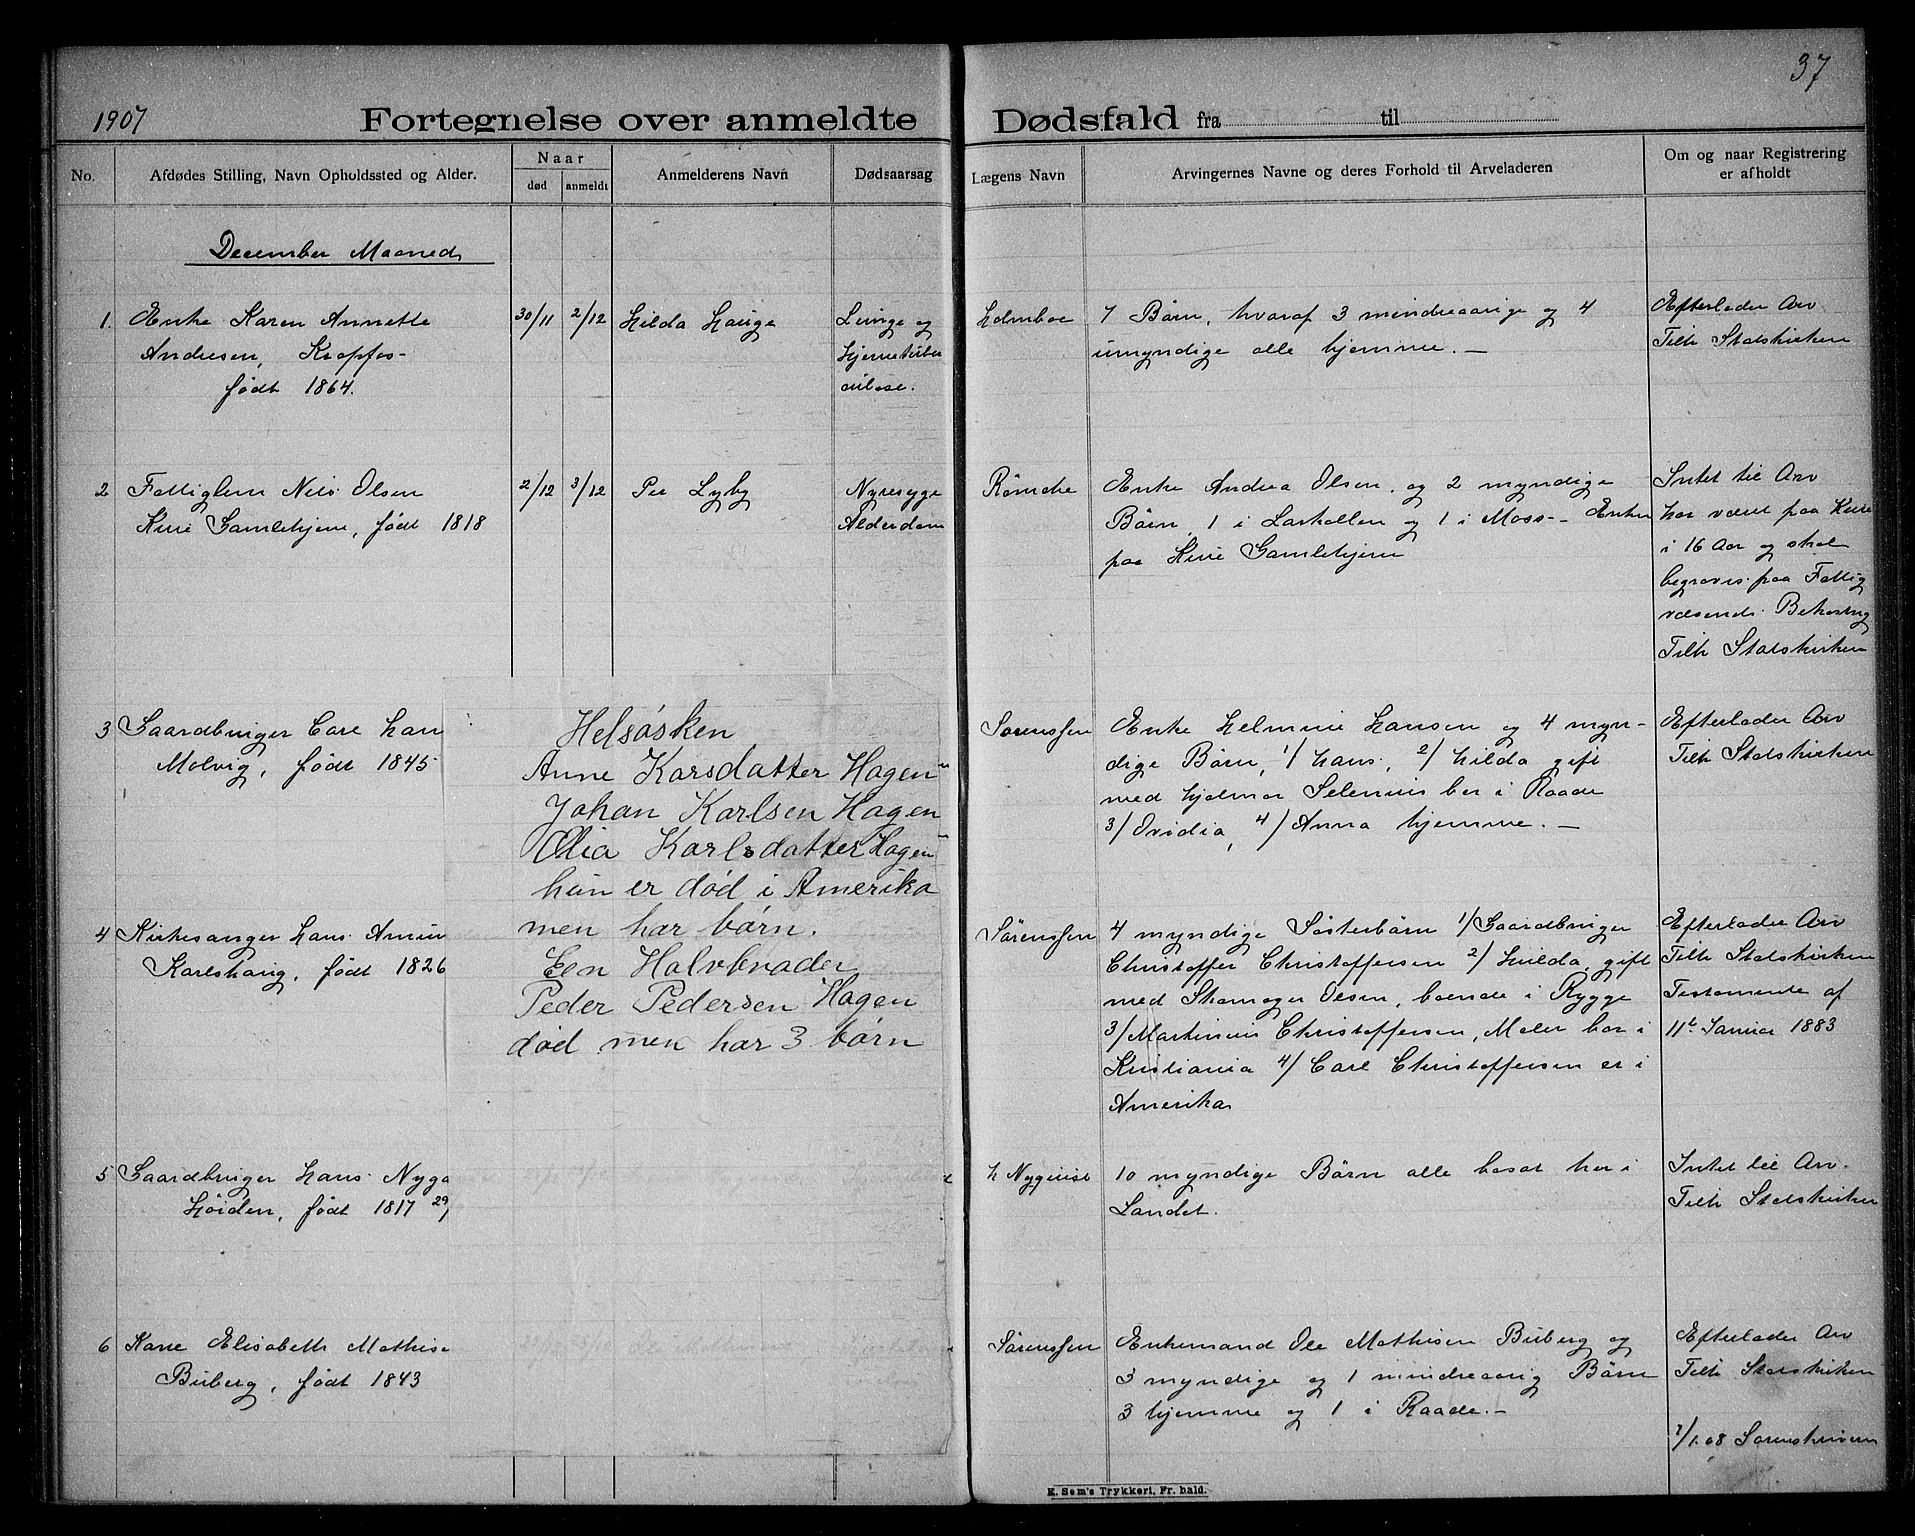 37
1907 Fortegnelse over anmeldte Dødsfald fra til
No. Afdødes Stilling, Navn Opholdssted og Alder. Naar død anmeldt Anmelderens Navn Dødsaarsag Lægens Navn Arvingernes Navne og deres Forhold til Arveladeren Om og naar Registrering er afholdt
December Maaned
1. Enke Karen Annette
Andresen, Kropfos-
født 1864.
30/11 2/12 Hilda Hauge
Lunge og
Hjernetuber
culose.
Holmboe
7 Børn, hvoraf 3 mindreaarige og 4
umyndige alle hjemme. —
Efterlader Arv
Tilh Statskirken
2 Fattiglem Nils Olsen
Kure Gamlehjem, født 1818
2/12 3/12 Per Lyby
Nyresyge
Alderdom
Rømcke
Enke Andrea Olsen, og 2 myndige
Børn, 1 i Larkollen og 1 i Moss - Enken
paa Kure Gamlehjem
Intet til Arv
har været paa Kure
i 16 Aar og skal
begraves paa Fattig
væsends Bekostng
Tilh Statskirken
3 Gaardbruger Carl Han
Molvig, født 1845
Sørenssen
Enke Helmine Hansen og 4 myn-
dige Børn, 1/ Hans, 2/ Hilda gift
med Hjalmar Selenius bor i Raade
3/ Ovidia, 4/ Anna hjemme. —
Efterlader Arv
Tilh Statskirken
Helsøsken
Anne Karsdatter Hagen
Johan Karlsen Hagen
Olia Karlsdatter Hagen
hun er død i Amerika
men har børn.
Een Halvbroder
Peder Pedersen Hagen
død men har 3 børn
4 Kirkesanger Hans Amun
Karlshaug, født 1826
Sørenssen
4 myndige Søsterbørn 1/ Gaardbruger
Christoffer Christoffersen 2/ Hilda, gift
med Skomager Olsen, boende i Rygge
3/ Martinius Christoffersen, Maler bor i
Kristiania 4/ Carl Christoffersen er i
Amerika
Efterlader Arv
Tilh Statskirken
Testamente af
11te Januar 1883
5 Gaardbruger Hans Nyga
Høiden, født 1817 29/
H Nyquist
10 myndige Børn alle bosat her i
Landet.
Intet til Arv.
Tilh Statskirken
6 Kone Elisabeth Mathise
Buberg, født 1843
Sørenssen
Enkemand Ole Mathisen Buberg og
3 myndige og 1 mindreaarig Børn
3 hjemme og 1 i Raade. -
Efterlader Arv
Tilh Statskirken
7/1.08 Sorenskriveren
E. Sem's Trykkeri, Fr.hald.